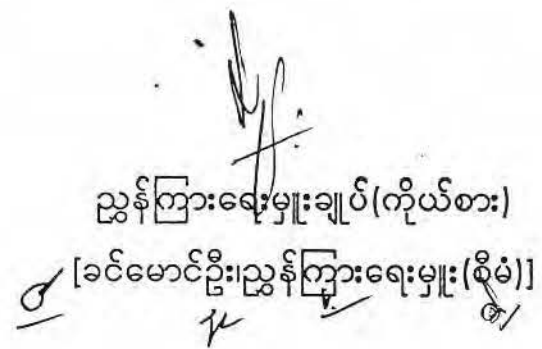 ညွှန်ကြားရေးမှူးချုပ်(ကိုယ်စား)
[ခင်မောင်ဦး၊ညွှန်ကြားရေးမှူး(စီမံ)]